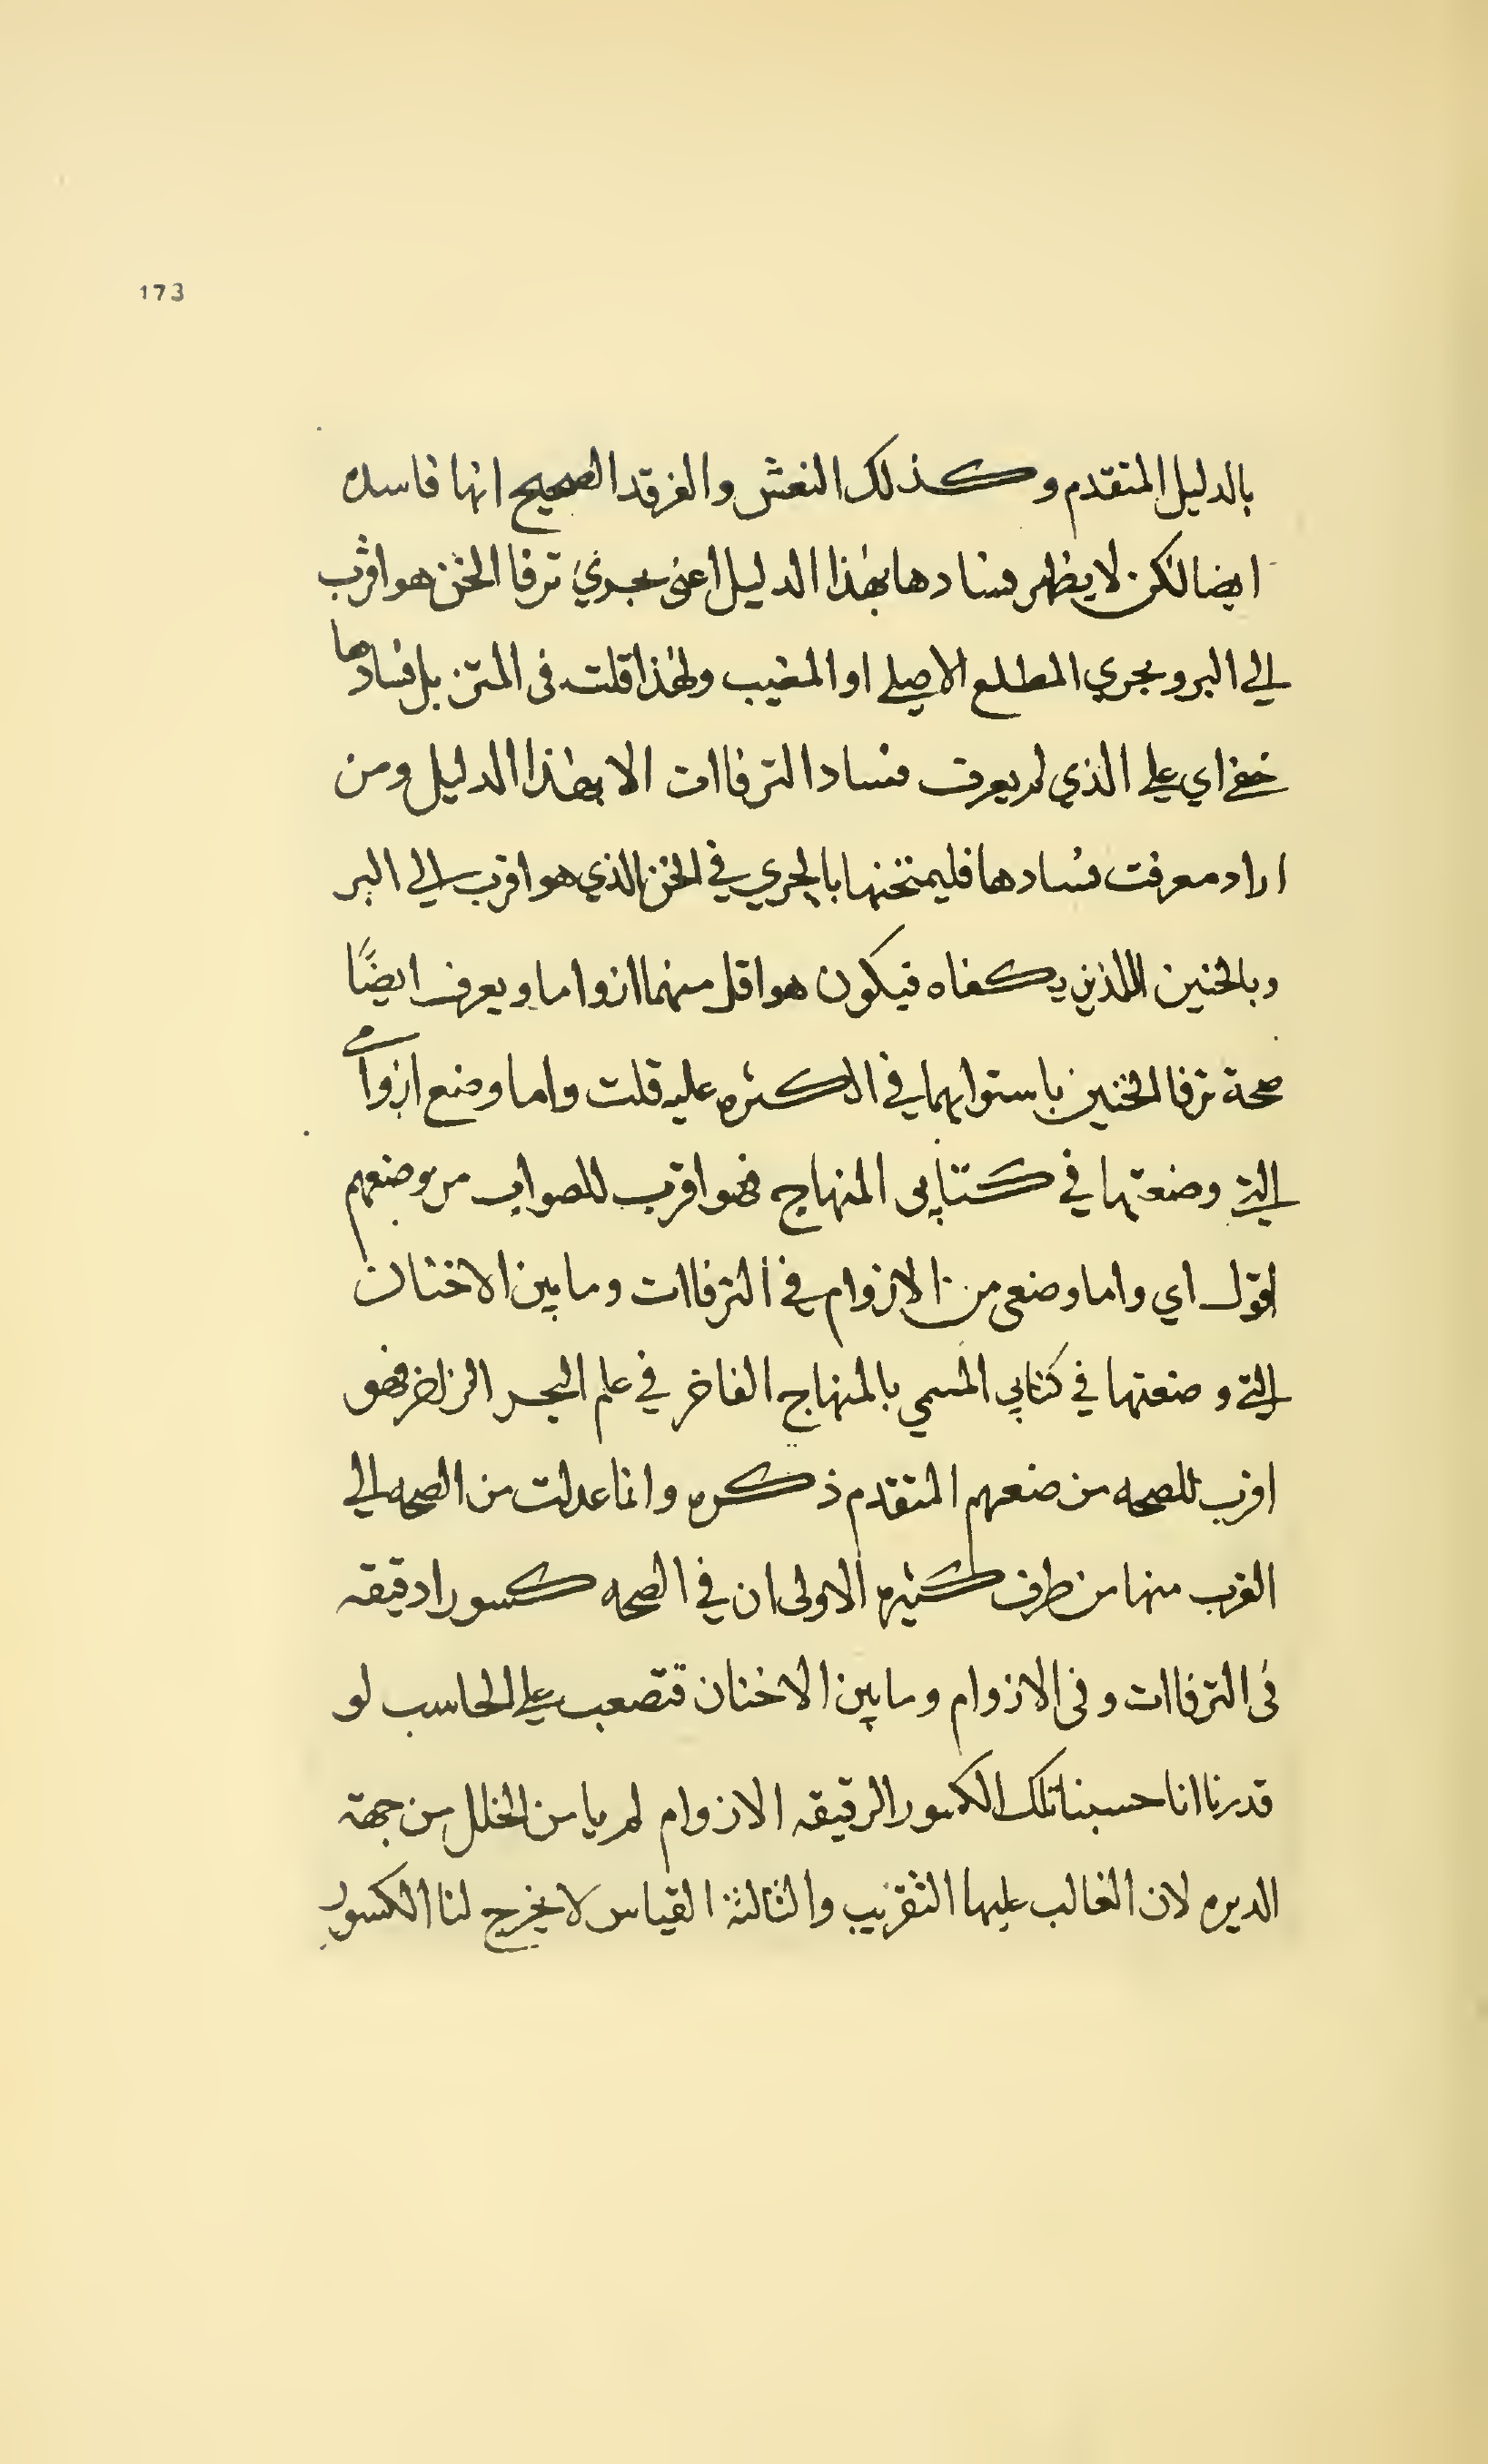 173
بالدليل المتقدم وكذلك النعش والفرقد الصحيح انها فاسده
ايضا لكن لا يظهر فسادها بهذا الدليل اعنى بجري ترفا الخن هو اقرب
إلى البر وبجري المطلع الاصلي او المغيب ولهذا قلت فى المتن بل فسادها
خفي اي على الذي لم يعرف فساد الترفاات الا بهذا الدليل ومن
اراد معرفت فسادها فليمتحنها بالجري في الخن الذي هو اقرب إلى البر
وبالخنين اللذين يكفاه فيكون هو اقل منهما ازواما ويعرف ايضًا
صحة ترفا الخنين باستوايهما في الكثره عليه قلت واما وضع ازوامي
التي وضعتها في كتابى المنهاج فهو اقرب للصواب من وضعهم
اقول اي واما وضعى من الازوام في الترفاات وما بين الاخنان
التي وضعتها في كتابي المسمي بالمنهاج الفاخر في علم البحر الزاخر فهو
اقرب للصحه من ضعهم المتقدم ذكره وانما عدلت من الصحه إلي
القرب منها من طرف كثيره الاولى ان في الصحه كسورا دقيقه
فى الترفاات وفى الازوام وما بين الاخنان فتصعب على الحاسب لو
قدرنا انا حسبنا تلك الكسور الرقيقه الازوام لم يامن الخلل من جهة
الديره لان الغالب عليها التقريب والثالثة القياس لا يخرج لنا الكسور